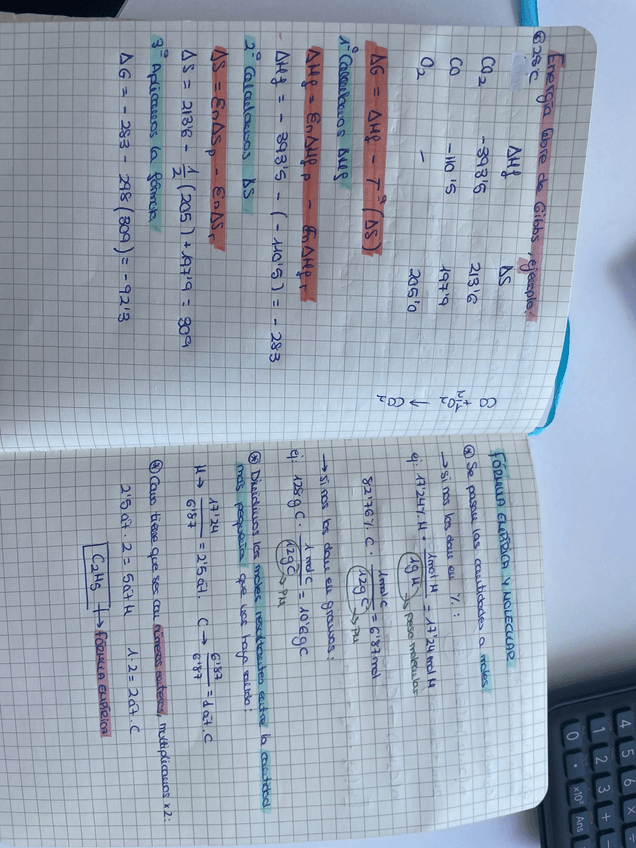 Energía libre de Gibbs ejemplo:
@ 25°C
ΔHf ΔS
CO2 -393'5 213'6
CO -110'5 197'9
O2 - 205'0
CO + 1/2 O2 → CO2
ΔG = ΔHf - Tª(ΔS)
1º Calculamos ΔHf
ΔHf = ΣnΔHfp - ΣnΔHfr
ΔHf = -393'5 - (-110'5) = -283
2º Calculamos ΔS
ΔS = ΣnΔSp - ΣnΔSr
ΔS = 213'6 - 1/2 (205) + 197'9 = 309
3º Aplicamos la fórmula
ΔG = -283 - 298 (309) = -92'3
FÓRMULA EMPÍRICA Y MOLECULAR
* Se pasan las cantidades a moles
→ si nos las dan en %:
ej: 17'24% H · 1mol H / 1g H = 17'24 mol H
→ peso molecular
82'76% C · 1mol C / 12g C = 6'87 mol
→ PM
→ si nos las dan en gramos:
ej: 128g C · 1 mol C / 12g C = 10'6 g C
→ PM
* Dividimos los moles resultantes entre la cantidad
más pequeña que nos haya salido:
H → 17'24 / 6'87 = 2'5 at. C → 6'87 / 6'87 = 1 at. C
* Como tiene que ser con números enteros, multiplicamos x2:
2'5 at · 2 = 5 at H 1·2 = 2 at. C
C2H5 → FÓRMULA EMPÍRICA
4 5 6 x
1 2 3 +
0 • x10ˣ Ans